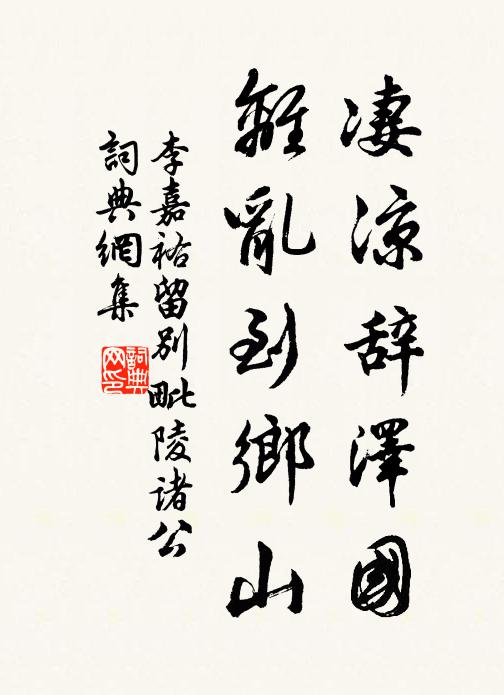 凄涼辞澤國
離亂到鄉山
李嘉祐留別毗陵諸公
詞典網集
詞典網印